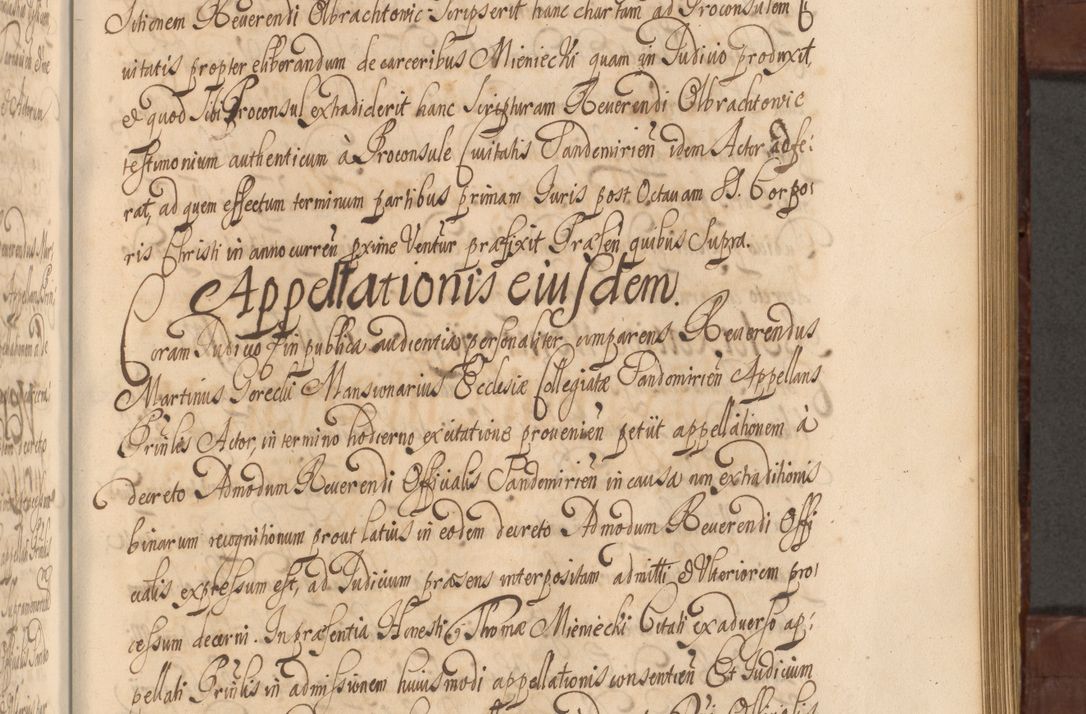 Reverendi Olbrachtowic Scripserit hanc chartam ad Proconsulem C
vitatis propter eliberandum de carceribus Mieniecki quam in Iudicio produxit,
& quod Sibi Proconsul extradiderit hanc Scripturam Reuerendi Olbrachtowic
testimonium authenticum à Proconsule Civitatis Sandomirien idem Actor adfe:
rat, ad quem effectum terminum partibus primam Iuris post Octavam SS. Corpo:
ris Christi in anno curren pxime Ventur præfixit Præsen quibus Supra.
Appellationis eiusdem.
Coram Iudicio & in publica audientia personaliter comparens Reuerendus
Martinus Gorecki Mansionarius Ecclesiæ Collegiatæ Sandomirien Appellans
Prinles Actor, in termino hodierno ex citatione provenien petiit appellationem à
decreto Admodum Reuerendi Officialis Sandomirien in causa non extraditionis
binarum recognitionum prout latius in eodem decreto Admodum Reuerendi Offi
cialis expressum est, ad Iudicium præsens interpositam admitti & Vlteriorem pro:
cessum decerni. In præsentia Honesti Thomæ Mieniecki Citati ex adverso ap:
pellati Prinlis in admissionem huiusmodi appellationis consentien Et Iudicium